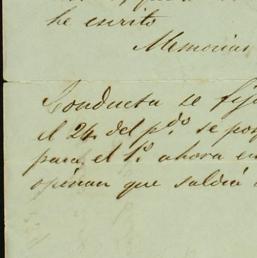 he escrito
Memorias
Conducta se fij
el 24 del pdo se pos
para el 1o ahora en
opinan que saldrá